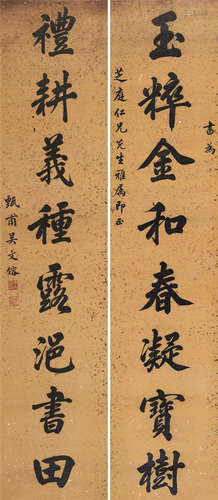 玉粹金和春凝寶樹
書為
芝庭仁兄先生雅屬即正
禮耕義種露浥書田
甄甫吳文鎔